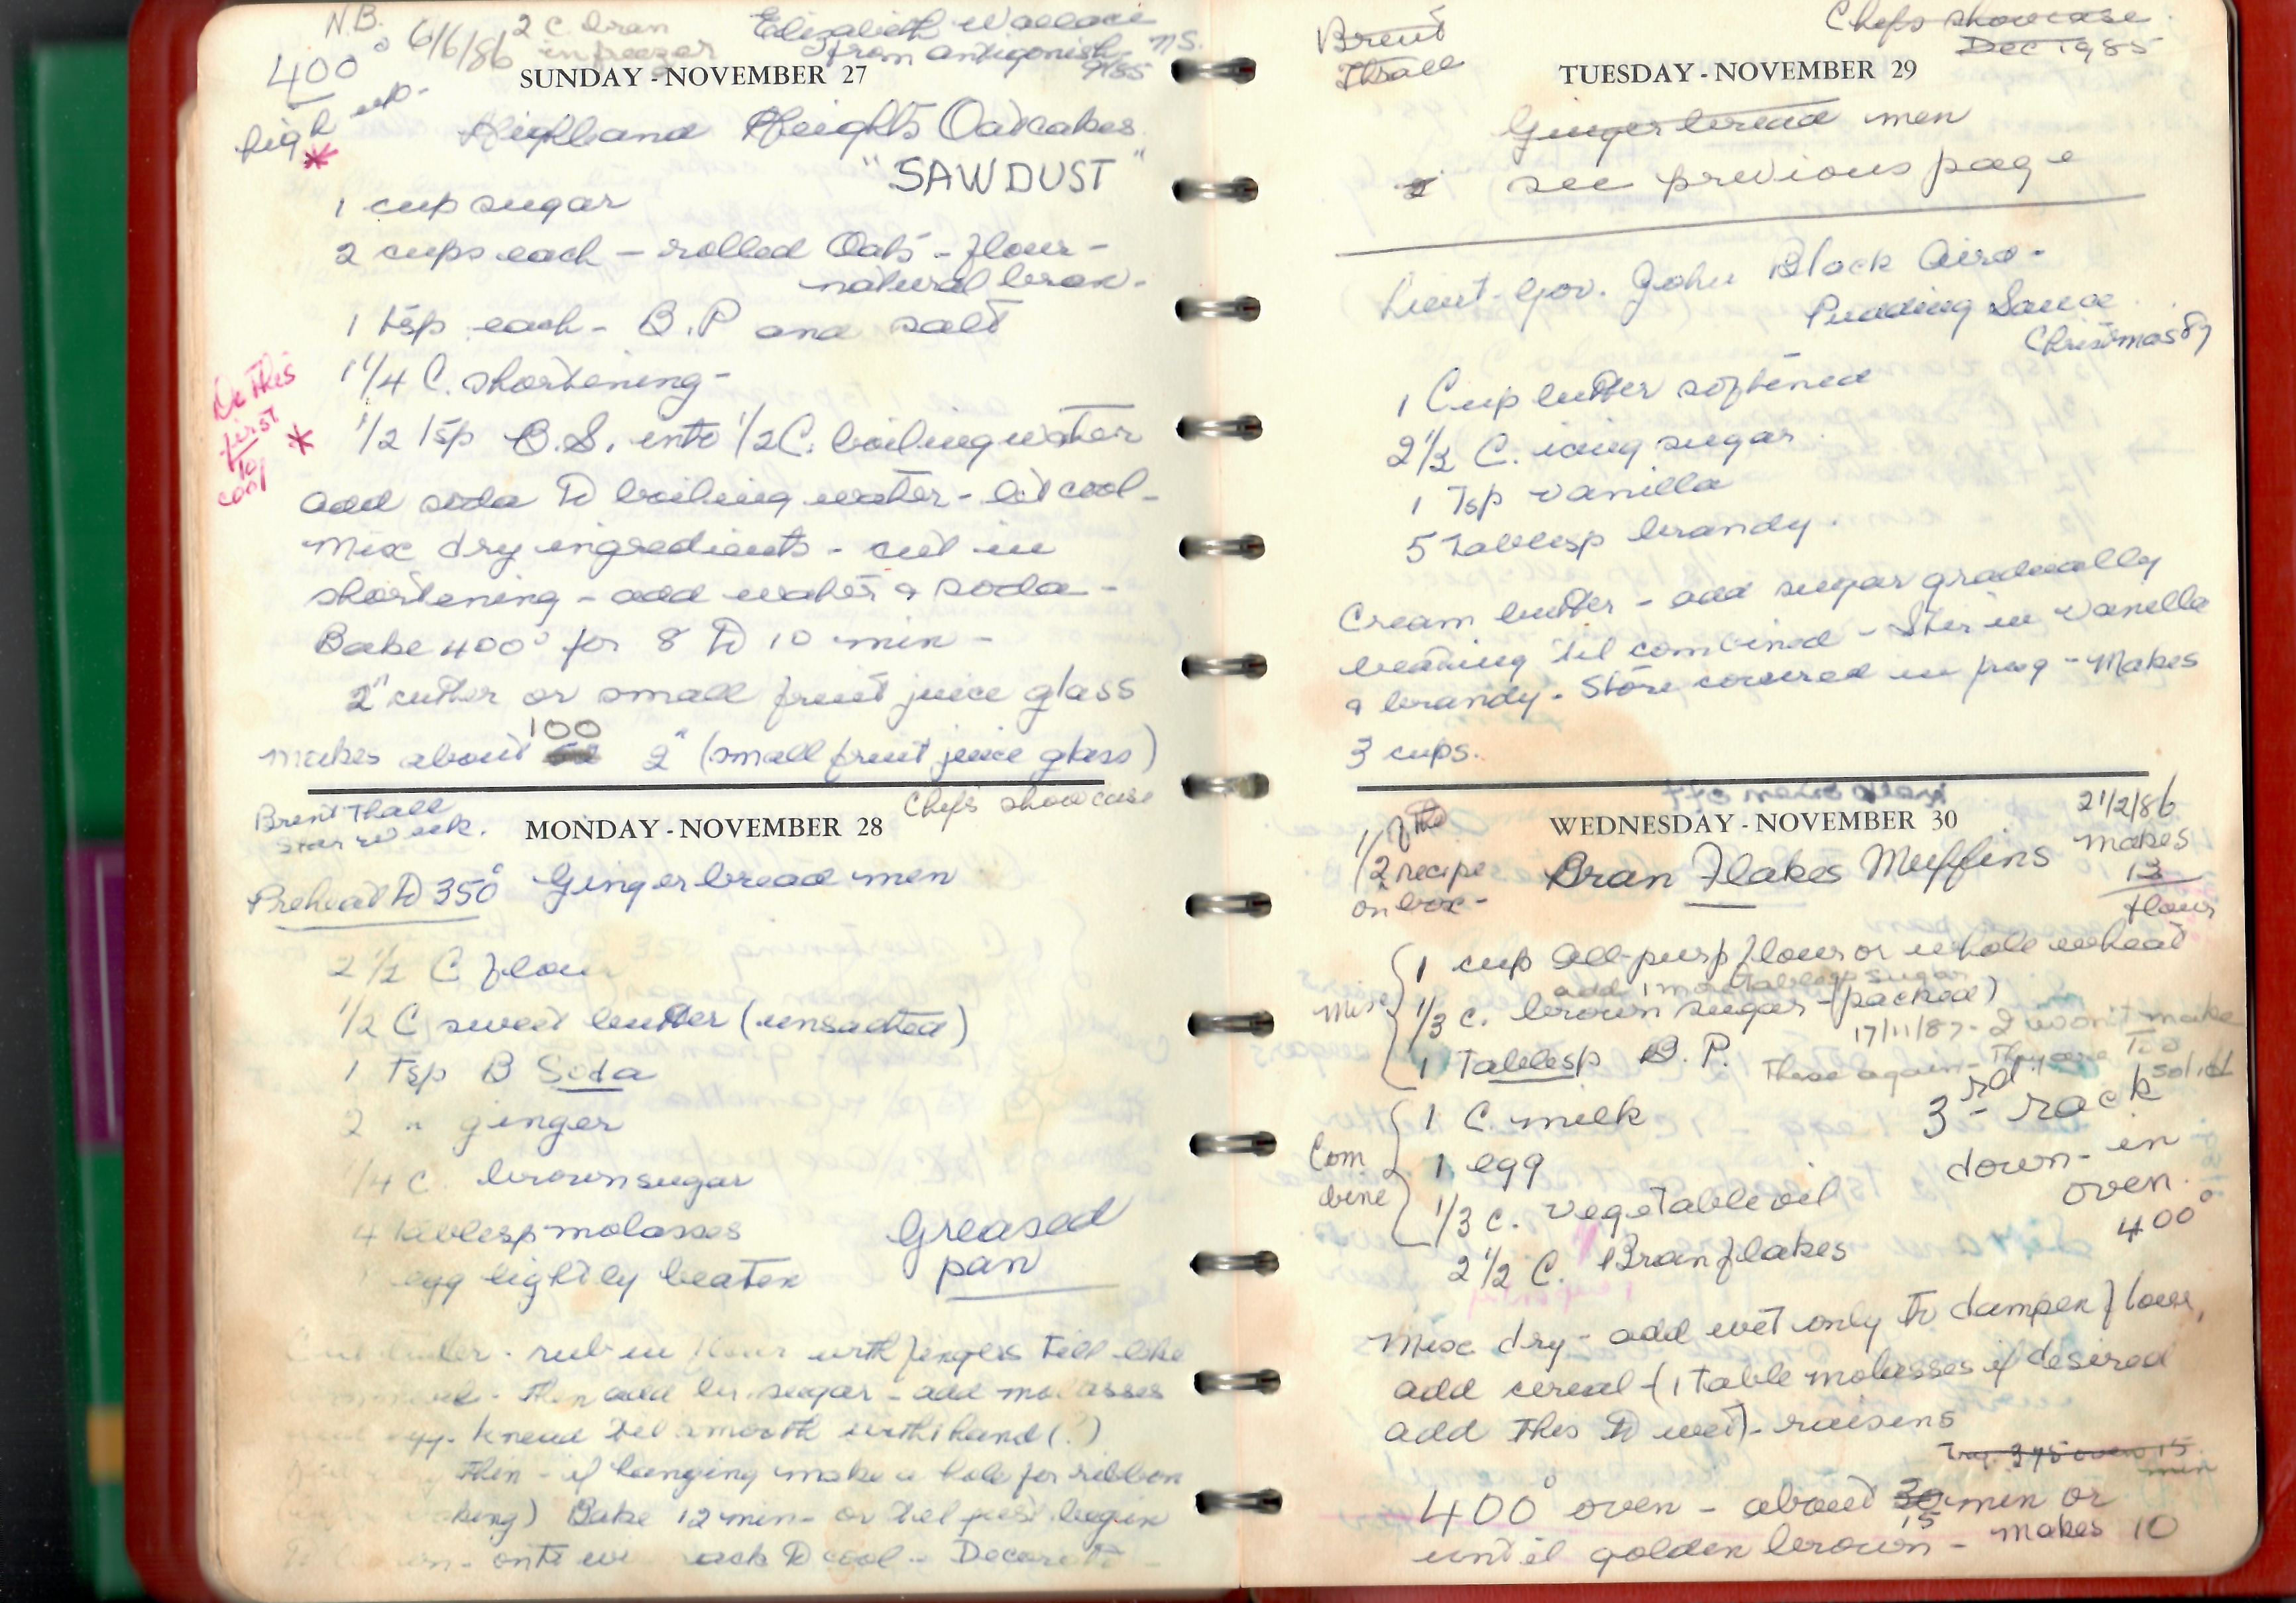 N.B.
6/6/86 2 C. bran
in freezer
Elizabeth Wallace
from Antigonish N.S.
9/85
400°
high
SUNDAY - NOVEMBER 27
Highland Heights Oatcakes
"SAWDUST"
1 cup sugar
2 cups each - rolled Oats - flour -
natural bran -
1 tsp each - B.P and salt
1 1/4 C. shortening -
Do this
first
to
cool
* 1/2 tsp B.S. into 1/2 C. boiling water
add soda to boiling water - let cool -
Mix dry ingredients - cut in
shortening - add water & soda -
Bake 400° for 8 to 10 min -
2" cutter or small fruit juice glass
100
makes about 2" (small fruit juice glass)
Brent Thall
Star Week.
Chefs showcase
MONDAY - NOVEMBER 28
Preheat to 350° Gingerbread men
2 1/2 C flour
1/2 C sweet butter (unsalted)
1 tsp B Soda
2 " ginger
1/4 C. brown sugar
4 tablesp molasses
egg lightly beaten
Greased
pan
butter - rub in flour with fingers till like
then add br. sugar - add molasses
egg - knead til smooth with hand (?)
thin - if hanging make a hole for ribbon
Bake 12 min - or til just begin
to cool - Decorate -
Brent
Thall
Chefs showcase
Dec 1985
TUESDAY - NOVEMBER 29
Gingerbread men
see previous page
Lieut - Gov. John Black Aird -
Pudding Sauce
Christmas 87
1 Cup butter softened
2 1/2 C. icing sugar
1 Tsp vanilla
5 Tablesp brandy.
Cream butter - add sugar gradually
beating 'til combined - Stir in vanilla
& brandy - Store covered in frig - Makes
3 cups.
1/2 of the
recipe
on box -
WEDNESDAY - NOVEMBER 30
21/2/86
makes
13
Bran Flakes Muffins
flour
Mix
1 cup all-purp flour or whole wheat
add 1 more tablesp sugar
1/3 c. brown sugar - (packed)
17/11/87 - I won't make
1 Tablesp B.P.
These again - They are too
solid
Combine
1 C. milk
1 egg
1/3 c. vegetable oil
2 1/2 C. Bran flakes
3rd rack
down - in
oven.
400°
Mix dry - add wet only to dampen flour,
add cereal - (1 table molasses if desired
add this to wet) - raisins
Try 375 oven 15
min
400° oven - about 30 min or
15
until golden brown - makes 10